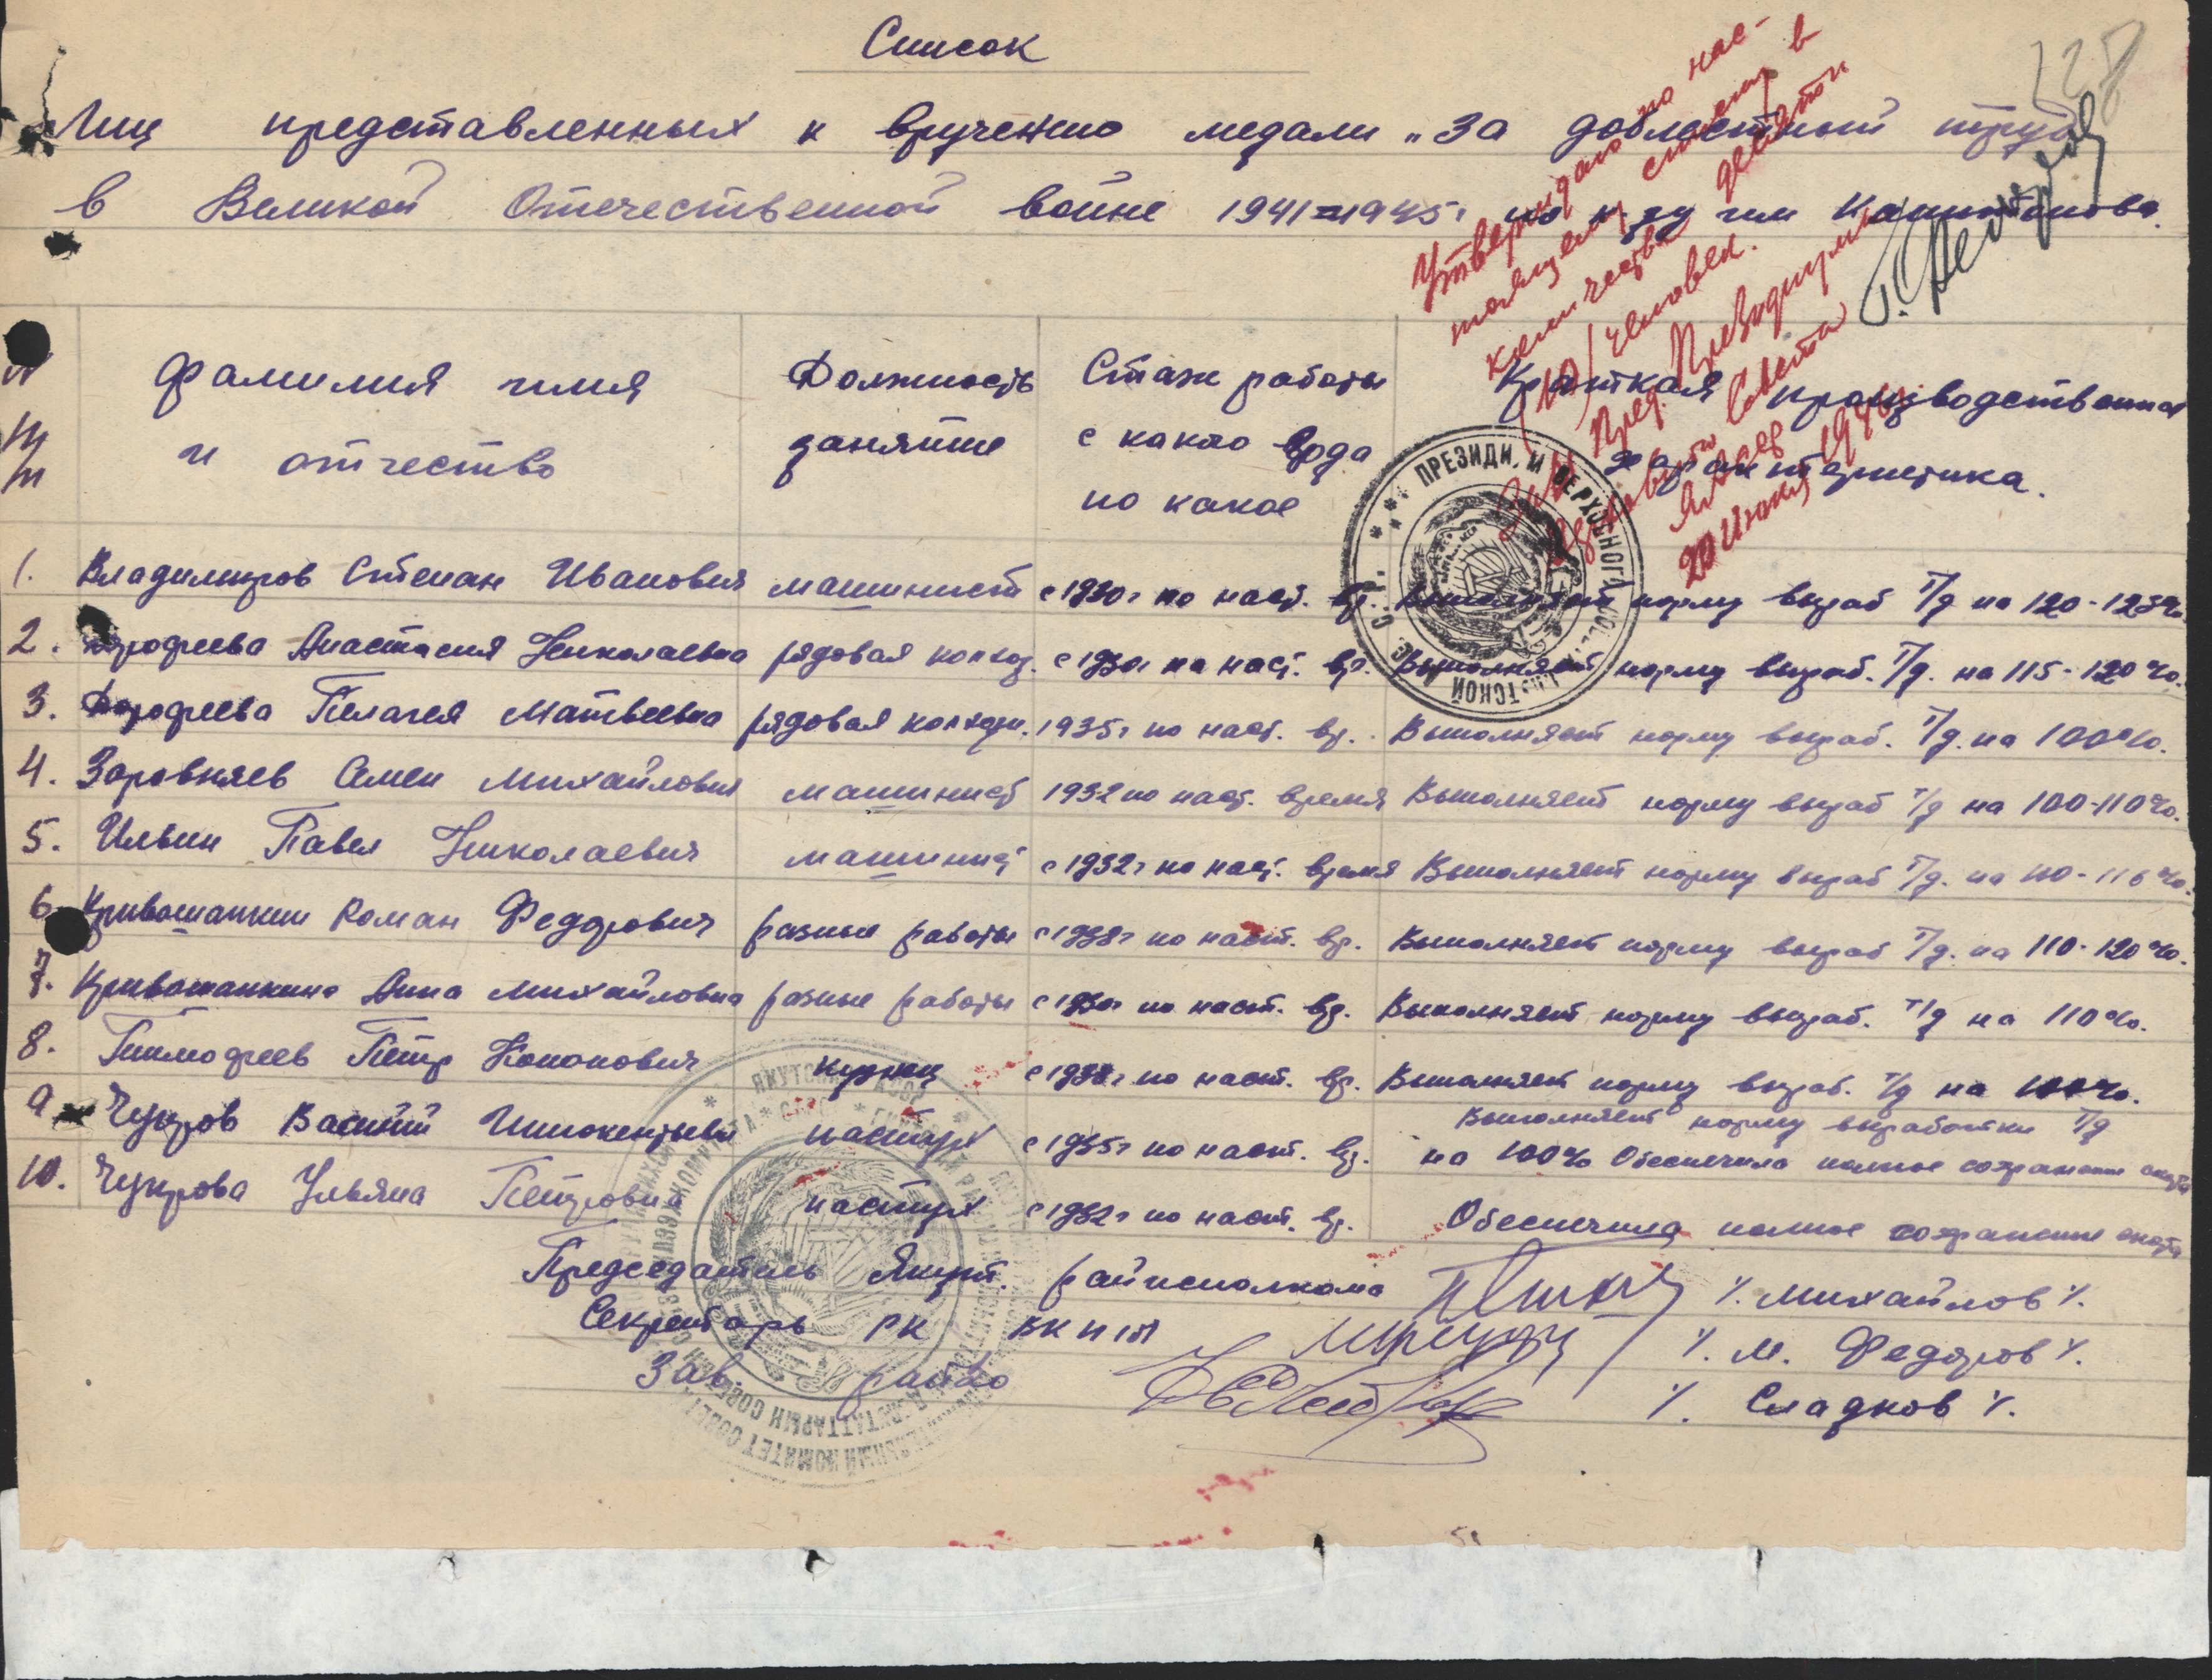 128
Список
Лиц представленных к вручению медали „За доблестный труд
в Великой Отечественной войне 1941-1945г по к-зу им
Утверждаю по нас-
тоящему списку в
количестве десяти
/10/ человек.
Зам Пред. Президиума
Верховного Совета
20 Июня 1946г
№ п/п
Фамилия имя и отчество
Должность занятие
Стаж работы с какого года по какое
Краткая производственная характеристика.
1. Владимиров Степан Иванович машинист с 1930г по наст. вр. Выполняет норму выраб т/д на 120-125%.
2. Дорофеева Анастасия Николаевна рядовая колхоз. с 1930г по наст. вр. Выполняет норму выраб. т/д. на 115-120%.
3. Дорофеева Пелагея Матвеевна рядовая колхозн. 1935г по наст. вр. Выполняет норму выраб. т/д. на 100%.
4. Заровняев Семен Михайлович машинист 1932 по наст. время Выполняет норму выраб т/д на 100-110%.
5. Ильин Павел Николаевич машинист с 1932г по наст. время Выполняет норму выраб т/д. на 110-115%.
6. Кривошапкин Роман Федорович разные работы с 1938г по наст. вр. Выполняет норму выраб т/д. на 110-120%.
7. Кривошапкина Анна Михайловна разные работы с 1930г по наст. вр. Выполняет норму выраб. т/д на 110%.
8. Тимофеев Петр Кононович кузнец с 1938г по наст. вр. Выполняет норму выраб. т/д на 100%.
9. Чукров Василий Иннокентьевич пастух с 1935г по наст. вр. Выполняет норму выработки т/д
на 100% Обеспечила полное сохранение скота
10. Чукрова Ульяна Петровна пастух с 1932г по наст. вр. Обеспечила полное сохранение скота
Председатель Якут. райисполкома /. Михайлов /.
Секретарь РК ВКП(б) /. М. Федоров /.
Зав. райзо /. Сладков /.